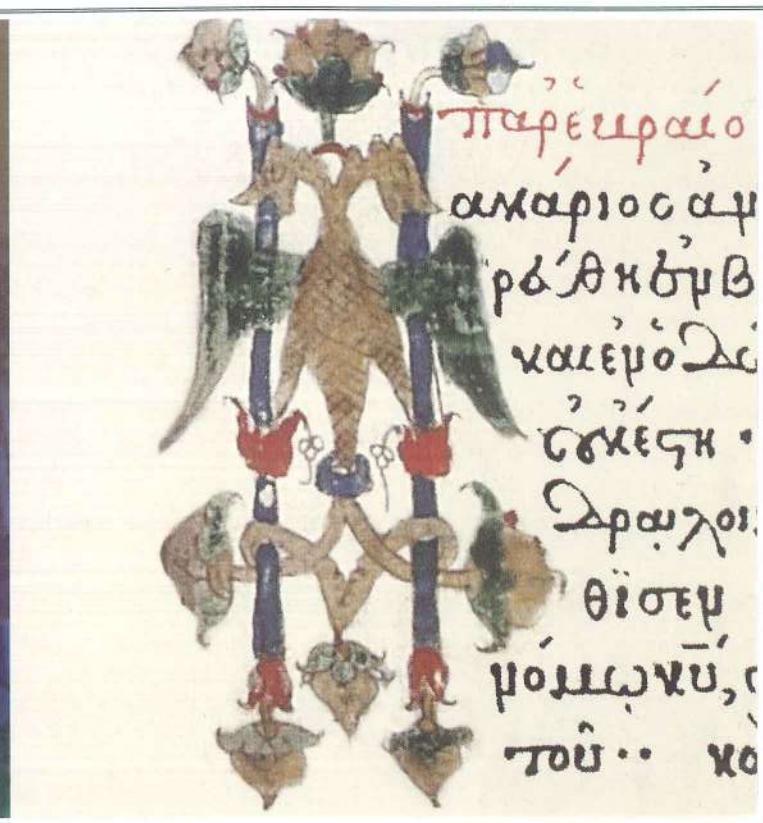 παρ ἑβραίο
ακάριος ἀν
ρεύθη ἐν β
καὶ ἐν ὁδῶ
οὐκ ἔστη ·
δρα λοι
θϊσεν
νόμω κ̅υ̅,
τοῦ ··